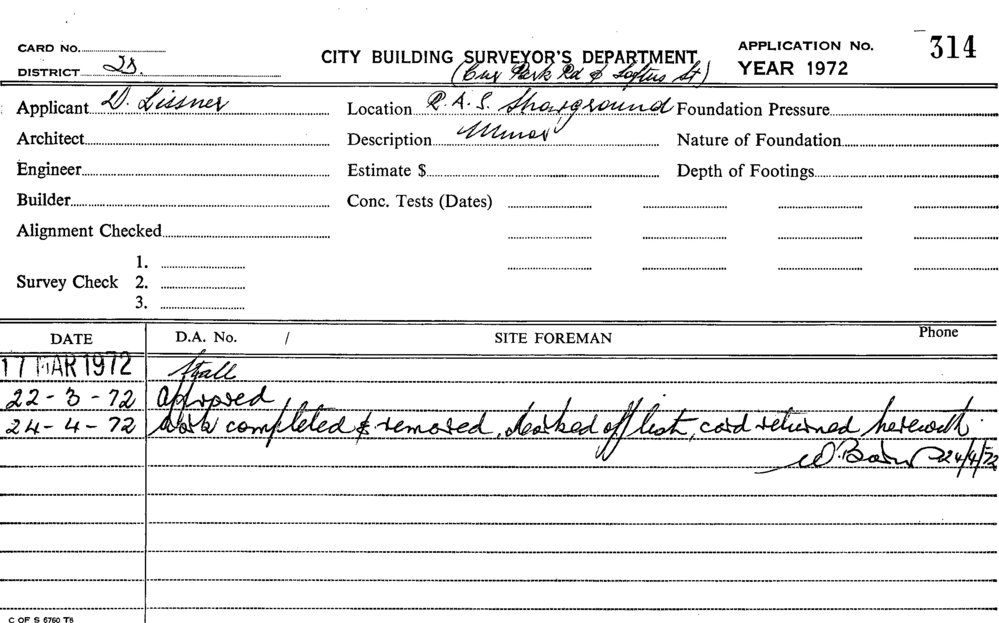 CARD No.
DISTRICT
CITY BUILDING SURVEYOR'S DEPARTMENT
(Cnr Park Rd & Loftus St)
APPLICATION No. 314
YEAR 1972
Applicant D. Lissner
Location R.A.S. Showground
Foundation Pressure
Architect
Description Minor
Nature of Foundation
Engineer
Estimate $
Depth of Footings
Builder
Conc. Tests (Dates)
Alignment Checked
Survey Check 1.
2.
3.
DATE D.A. No. / SITE FOREMAN Phone
17 MAR 1972 Stall
22-3-72 Approved
24-4-72 Work completed & removed, marked off list, card returned herewith.
24/4/72
C OF S 6760 T5